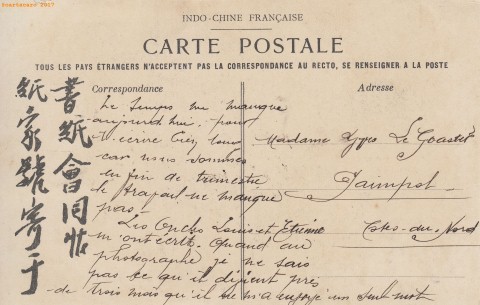 Scartscard 2007
INDO-CHINE FRANÇAISE
CARTE POSTALE
TOUS LES PAYS ÉTRANGERS N'ACCEPTENT PAS LA CORRESPONDANCE AU RECTO, SE RENSEIGNER A LA POSTE
Correspondance
Le temps me manque
aujourd'hui pour
t'écrire très long
car nous sommes
en fin de trimestre
le travail ne manque
pas
Les Oncles Louis et Etienne
m'ont écrit. Quand au
photographe je ne sais
pas ce qu'il disent près
de trois mois qu'il ne m'a envoyé un seul mot
Adresse
Madame Le Goaster
Paimpol
Côtes-du-Nord
書紙會同帖
紙家號寄于